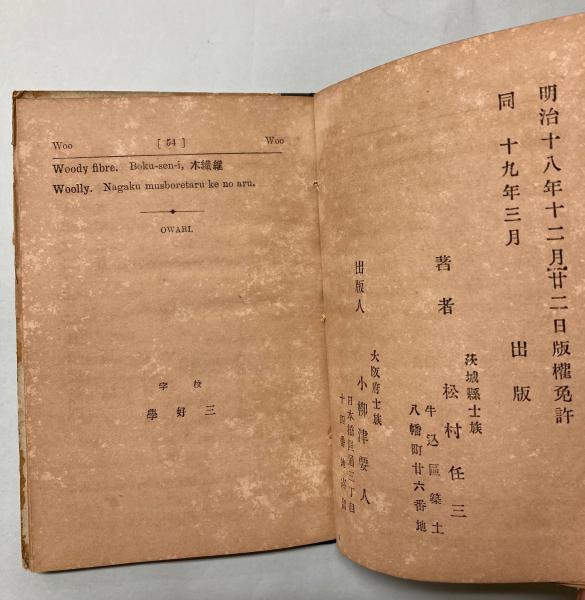 Woo [ 54 ] Woo
Woody fibre. Boku-sen-i, 木纖維
Woolly. Nagaku musboretaru ke no aru.
OWARI.
字 校
學 好 三
明治十八年十二月廿二日版權免許
同 十九年三月 出版
茨城縣士族
著者 松村任三
牛込區築土
八幡町廿六番地
大阪府士族
出版人 小柳津要人
日本橋區通三丁目
十四番地寄留